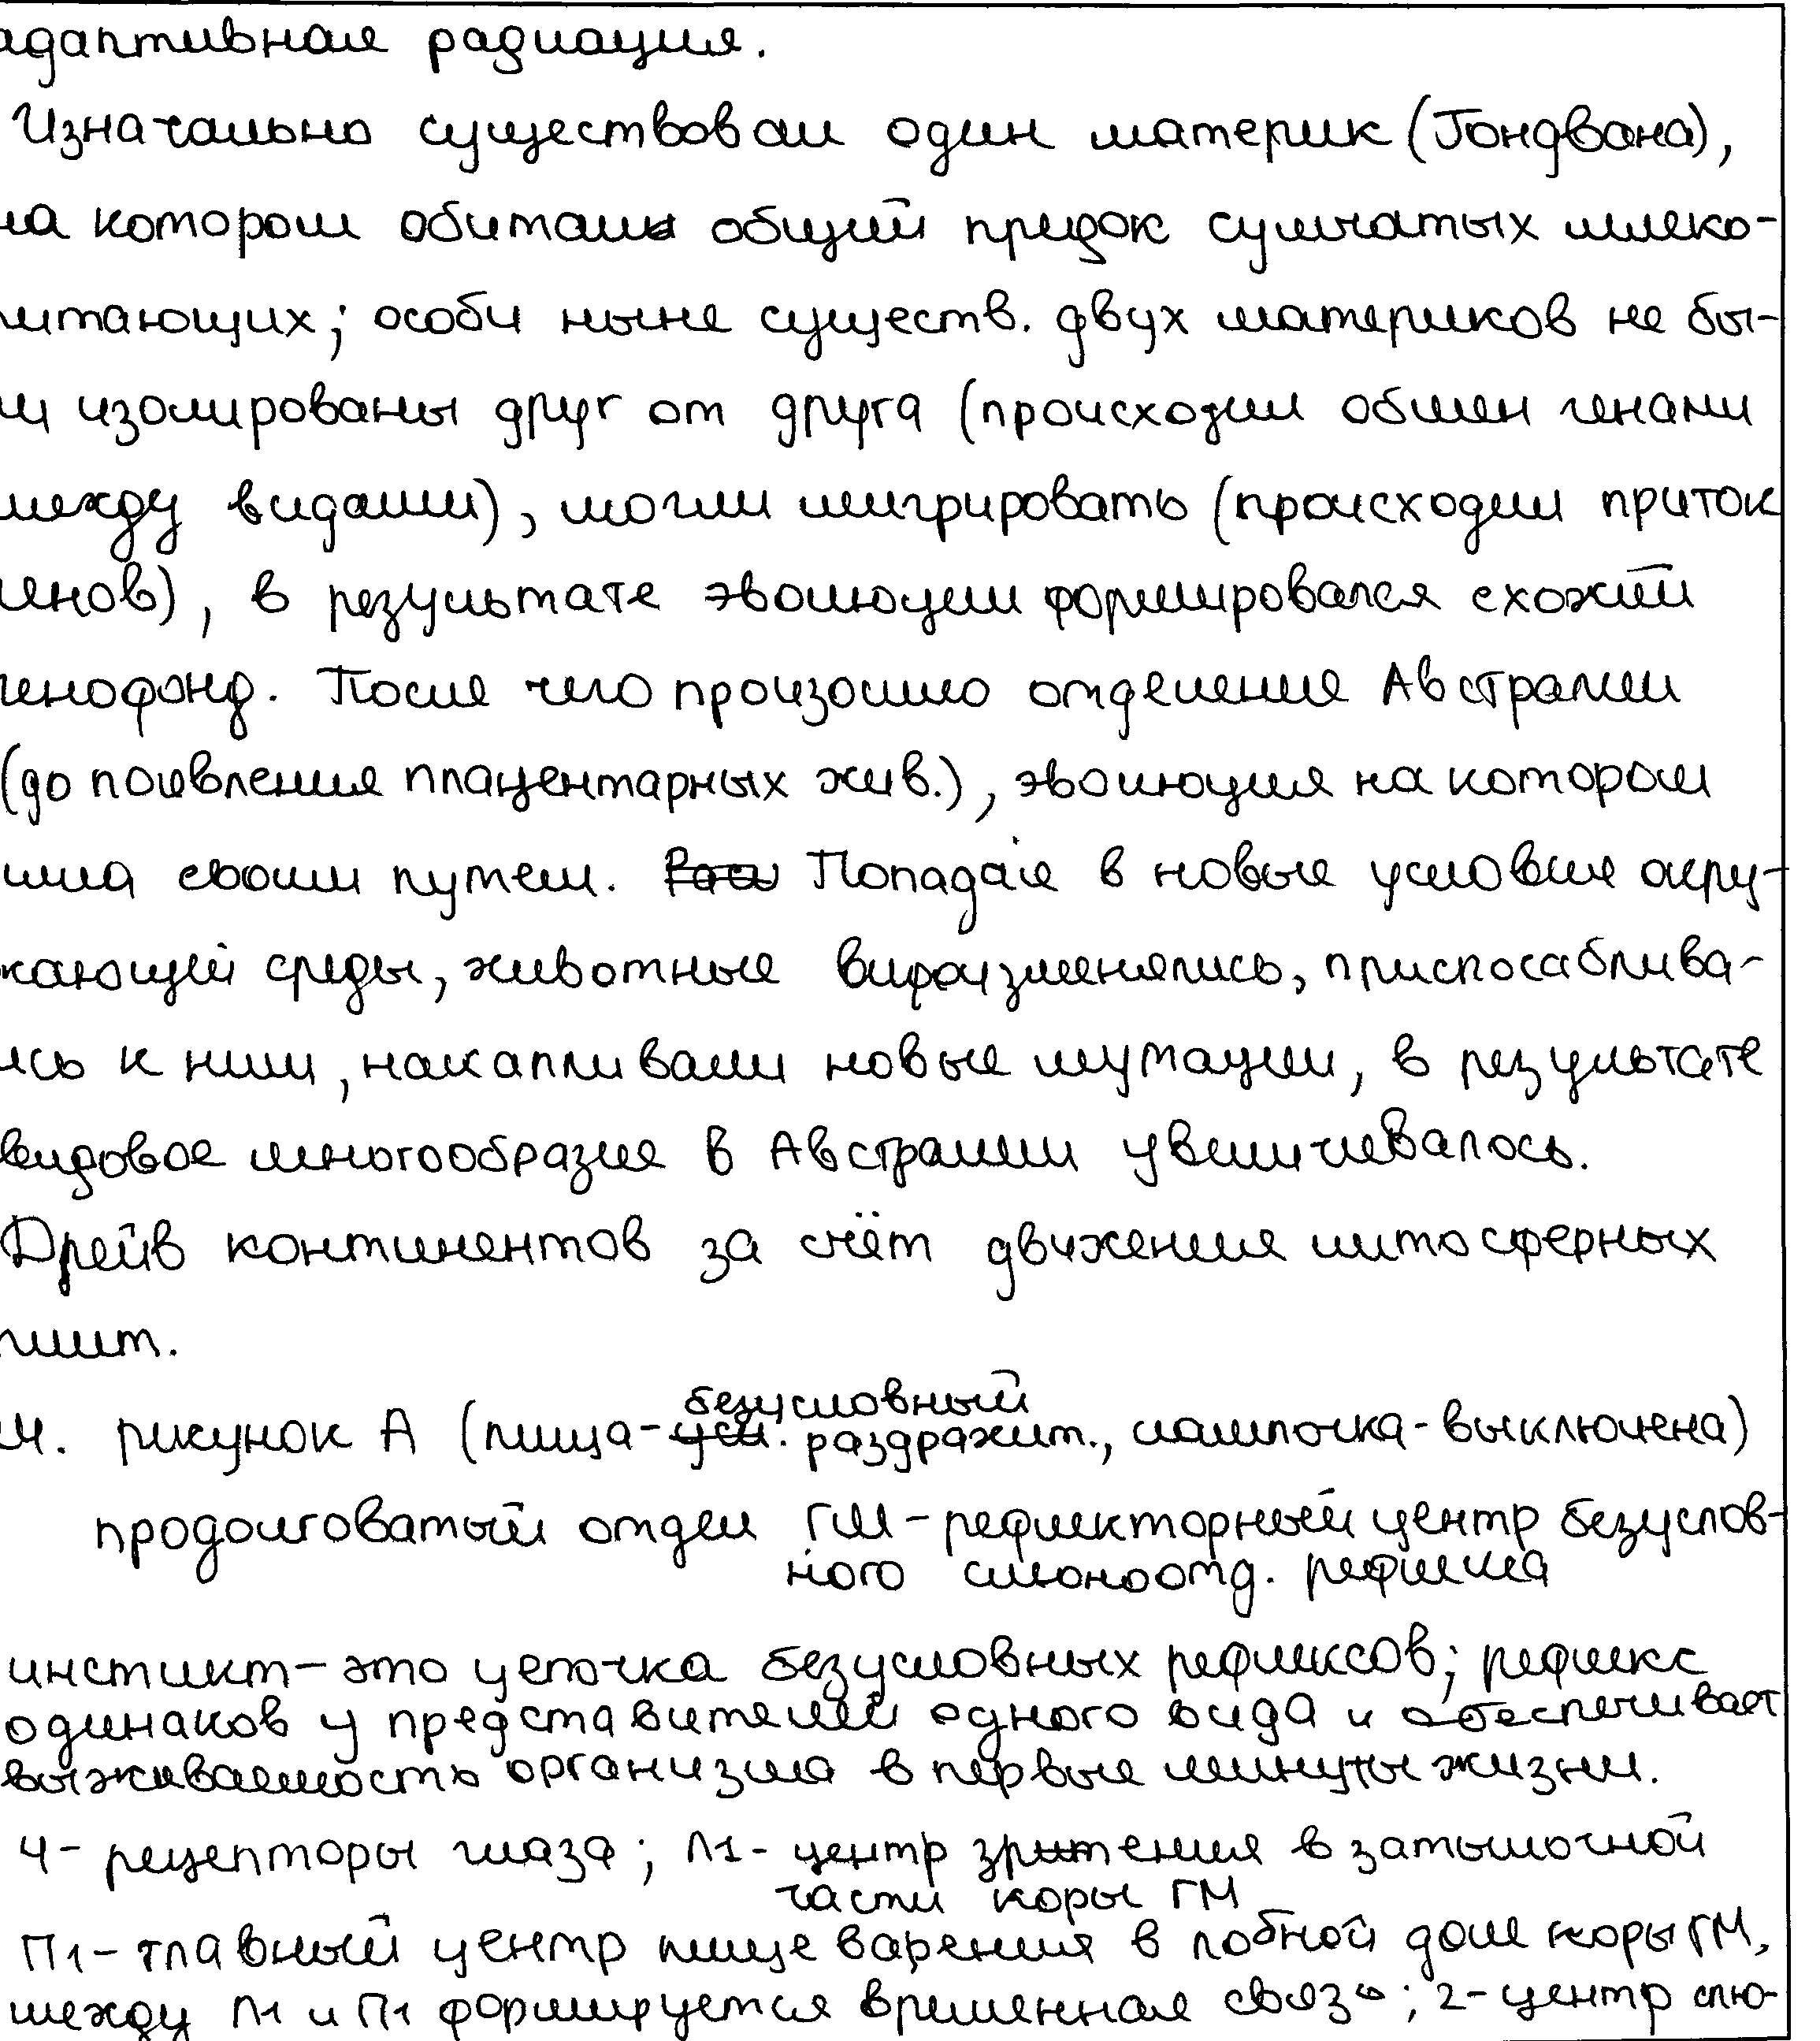 адаптивная радиация.
Изначально существовал один материк (Гондвана),
на котором обитал общий предок сумчатых млеко-
питающих; особи ныне существ. двух материков не бы-
ли изолированы друг от друга (происходил обмен генами
между видами), могли мигрировать (происходил приток
генов), в результате эволюции формировался схожий
генофонд. После чего произошло отделение Австралии
(до появления плацентарных жив.), эволюция на котором
шла своим путем. Попадая в новые условия окру-
жающей среды, животные видоизменялись, приспосаблива-
лсь к ним, накапливали новые мутации, в результате
видовое многообразие в Австралии увеличивалось.
Дрейв континентов за счёт движения литосферных
плит.
4. рисунок А (пища - безусловный раздражит., лампочка - выключена)
продолговатый отдел ГМ - рефлекторный центр безуслов-
ного слюноотд. рефлекса
инстинкт - это цепочка безусловных рефлексов; рефлекс
одинаков у представителей одного вида и обеспечивает
выживаемость организма в первые минуты жизни.
4 - рецепторы глаза; Л1 - центр зрения в затылочной
части коры ГМ
П1 - главный центр пищеварения в лобной доле коры ГМ,
между Л1 и П1 формируется временная связь; 2 - центр слю-